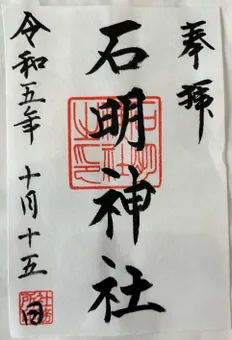 奉拝
石明神社
令和五年 十月十五日